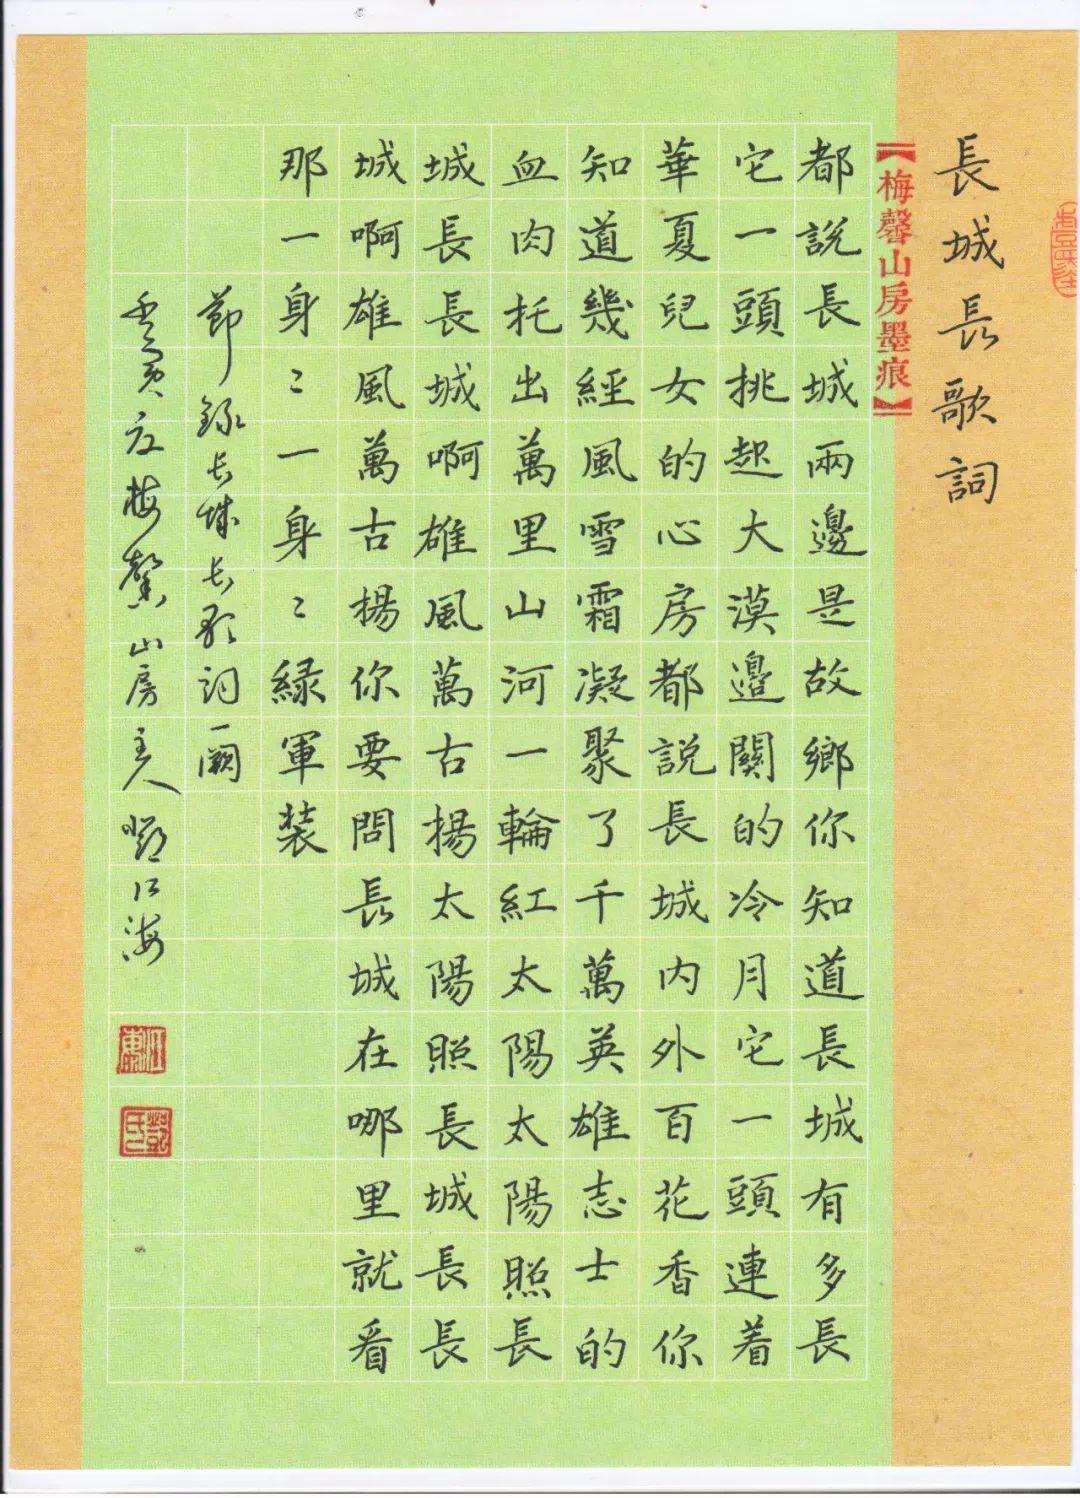 長城長歌詞
【梅馨山房墨痕】
都說長城兩邊是故鄉你知道長城有多長
它一頭挑起大漠邊關的冷月它一頭連着
華夏兒女的心房都說長城內外百花香你
知道幾經風雪霜凝聚了千萬英雄志士的
血肉托出萬里山河一輪紅太陽太陽照長
城長長城啊雄風萬古揚太陽照長城長長
城啊雄風萬古揚你要問長城在哪里就看
那一身〻一身〻綠軍装
節錄长城长歌詞一闕
寅梅馨山房主人鄧江海
鄧氏